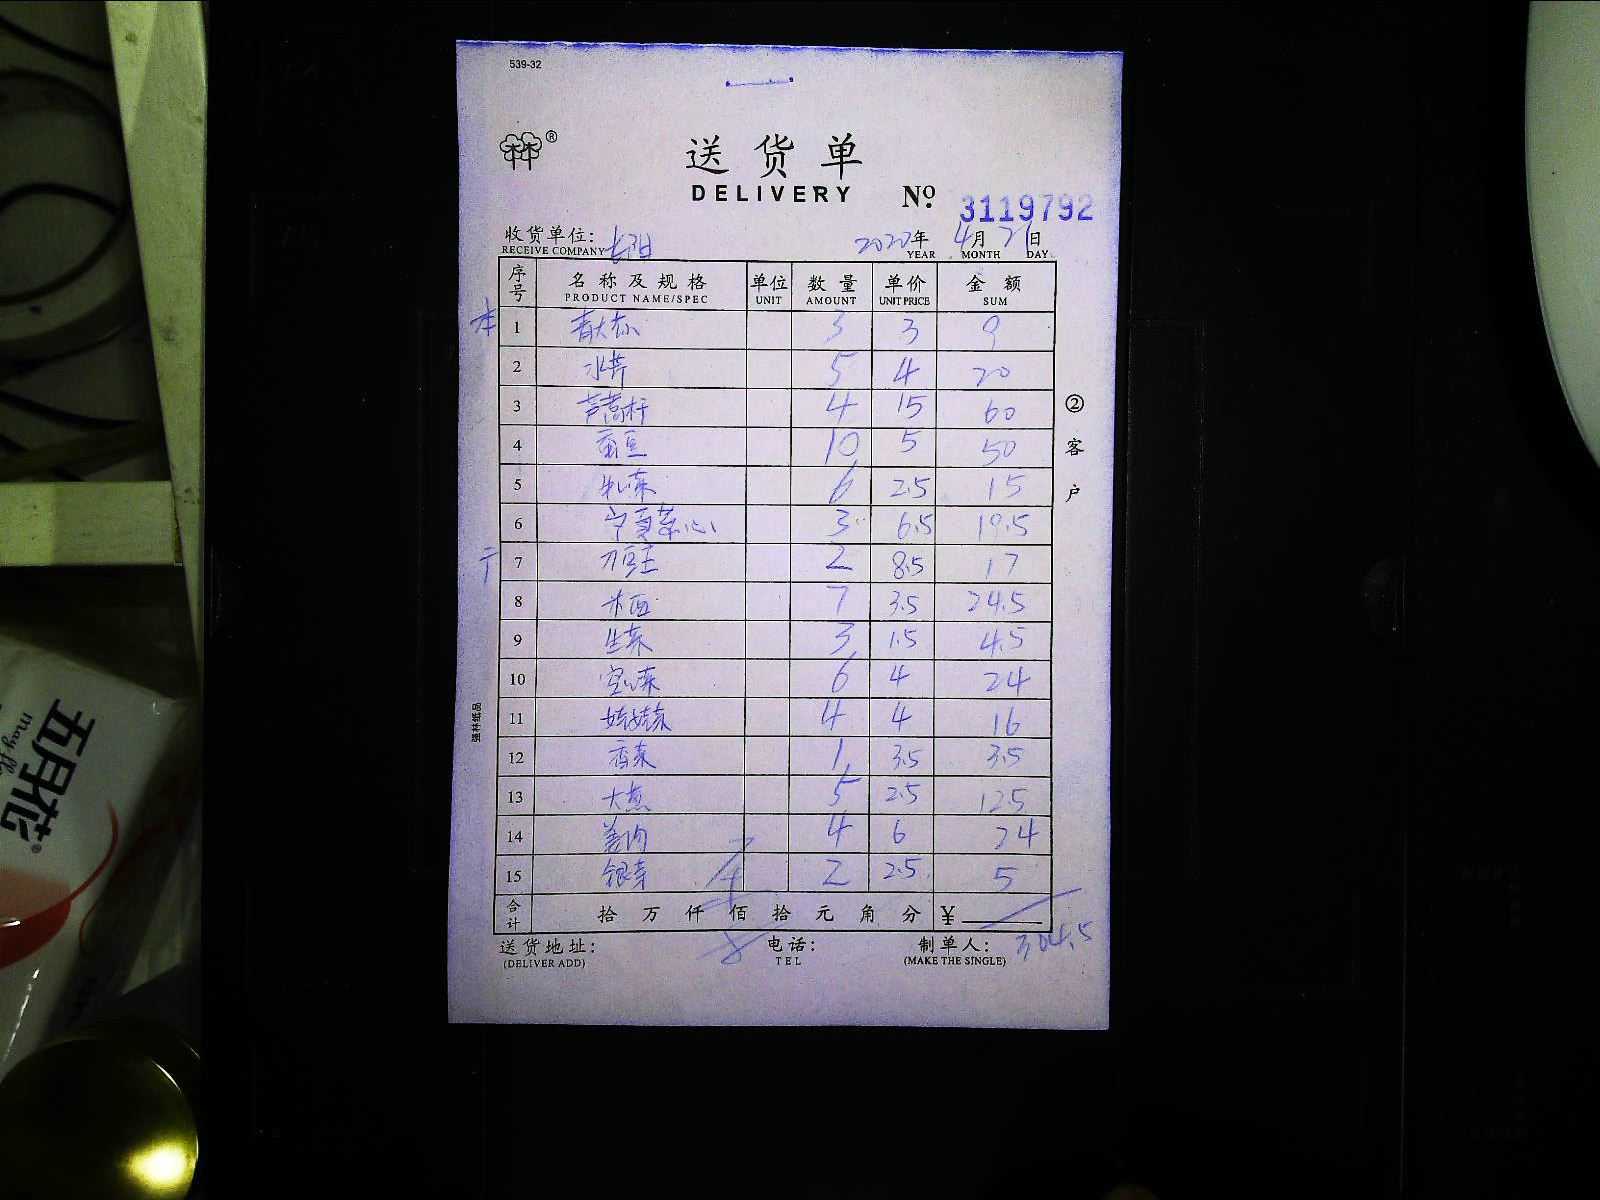 539-32
林®
送货单
DELIVERY No. 3119792
收货单位: 长阳 2022年 4月 21日
RECEIVE COMPANY YEAR MONTH DAY
序号 名称及规格 单位 数量 单价 金额
PRODUCT NAME/SPEC UNIT AMOUNT UNIT PRICE SUM
1 青大椒 3 3 9
2 水芹 5 4 20
3 芦蒿杆 4 15 60
4 蚕豆 10 5 50
5 6 2.5 15
6 宁夏菜心 3 6.5 19.5
7 刀豆王 2 8.5 17
8 本西 7 3.5 24.5
9 生菜 3 1.5 4.5
10 空心菜 6 4 24
11 4 4 16
12 香菜 1 3.5 3.5
13 大葱 5 2.5 12.5
14 姜肉 4 6 24
15 银芽 2 2.5 5
合计 拾万仟佰拾元角分 ¥
304.5
送货地址: 电话: 制单人:
(DELIVER ADD) TEL (MAKE THE SINGLE)
②客户
强林纸品
五月花®
may fl